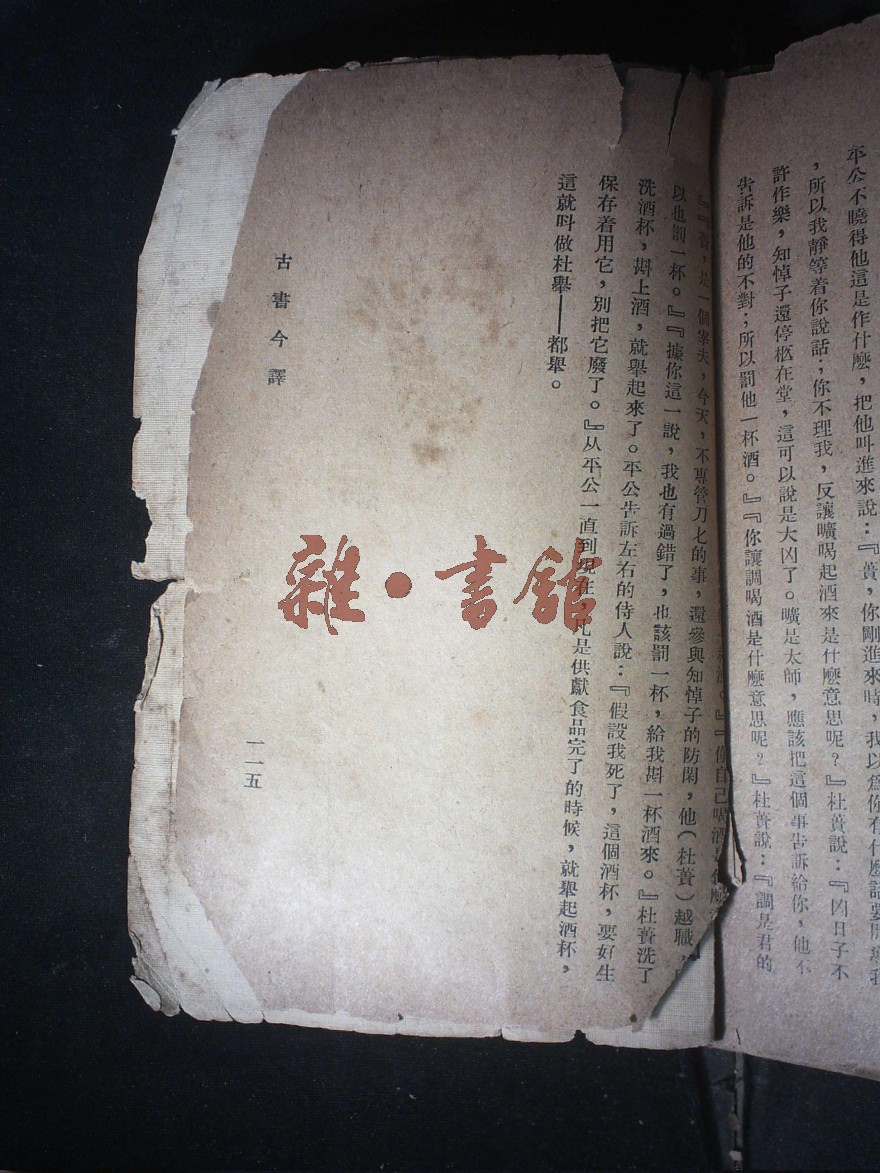 平公不曉得他這是作什麽，把他叫進來說：『蕢，你剛進來時，我以爲你有什麽話要開導我
，所以我靜等着你說話；你不理我，反讓曠喝起酒來是什麽意思呢？』杜蕢說：『凶日子不
許作樂，知悼子還停柩在堂，這可以說是大凶了。曠是太師，應該把這個事告訴給你，他不
告訴是他的不對；所以罰他一杯酒。』『你讓調喝酒是什麽意思呢？』杜蕢說：『調是君的
』『你自己喝酒是什麽
『『蕢，是一個宰夫，今天，不專管刀匕的事，還參與知悼子的防閑，他（杜蕢）越職，
以也罰一杯。』『據你這一說，我也有過錯了，也該罰一杯，給我斟一杯酒來。』杜蕢洗了
洗酒杯，斟上酒，就舉起來了。平公告訴左右的侍人說：『假設我死了，這個酒杯，要好生
保存着用它，別把它廢了。』从平公一直到現在，凡是供獻食品完了的時候，就舉起酒杯，
這就叫做杜舉——都舉。
古書今譯
一一五
雜·書館